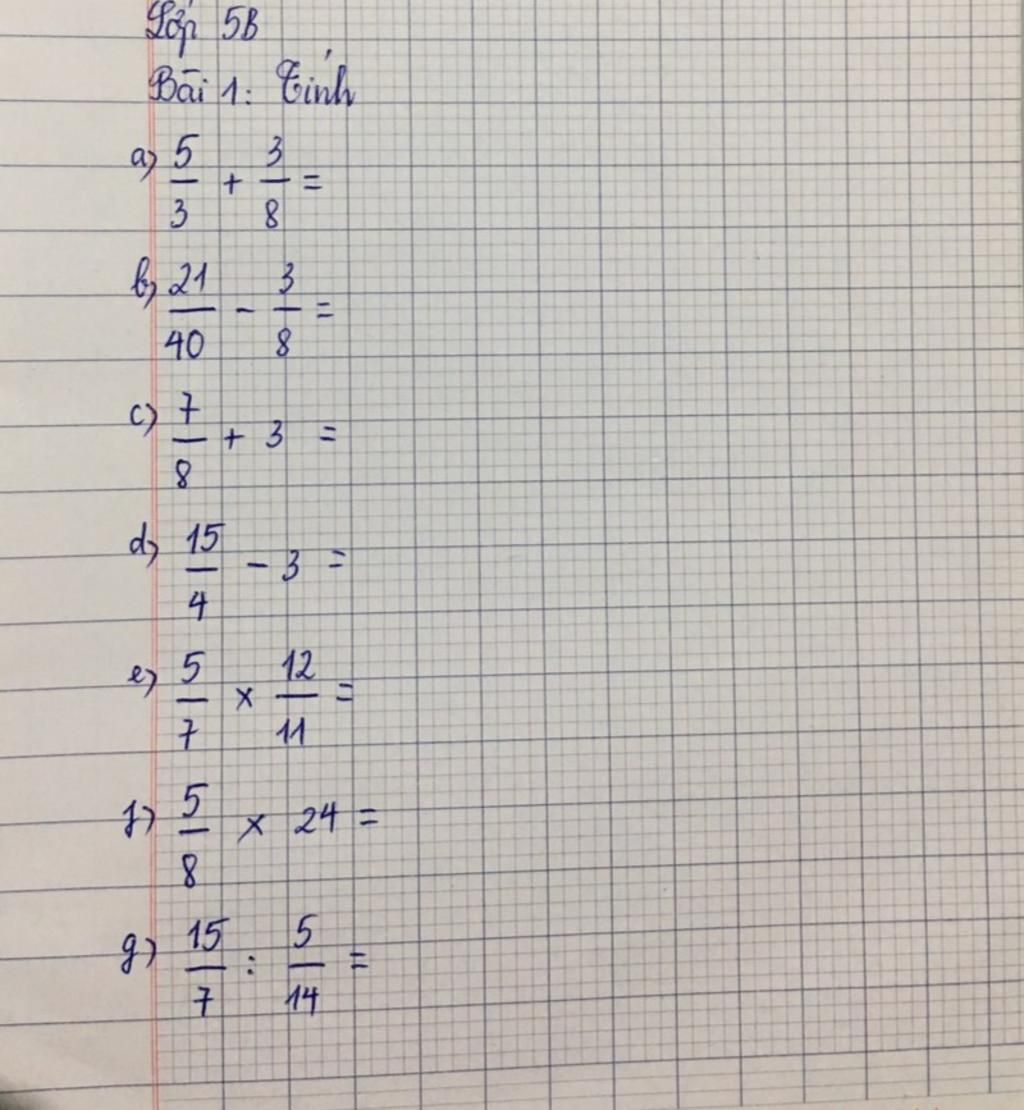 Lớp 5B
Bài 1: Tính
a) 5/3 + 3/8 =
b) 21/40 - 3/8 =
c) 7/8 + 3 =
d) 15/4 - 3 =
e) 5/7 x 12/11 =
f) 5/8 x 24 =
g) 15/7 : 5/14 =